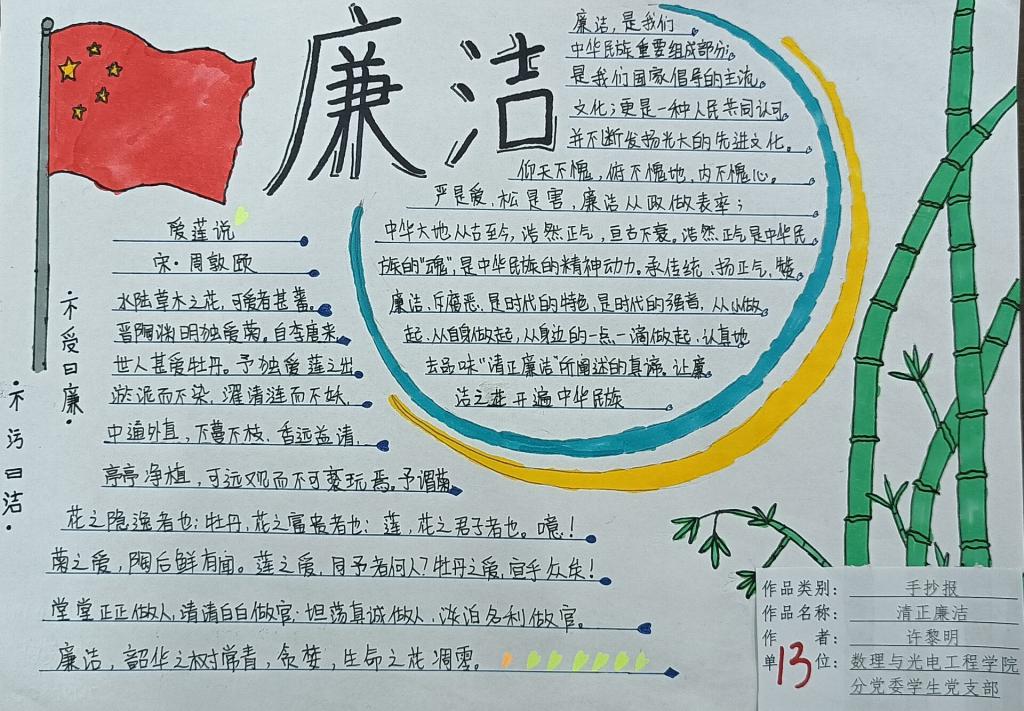 廉洁
廉洁,是我们
中华民族重要组成部分。
是我们国家倡导的主流。
文化;更是一种人民共同认可
并不断发扬光大的先进文化。
仰天不愧,俯不愧地,内不愧心。
严是爱,松是害,廉洁从政做表率;
中华大地从古至今,浩然正气,亘古不衰。浩然正气是中华民
族的“魂”,是中华民族的精神动力。承传统、扬正气,
廉洁、斥腐恶,是时代的特色,是时代的强音,从小做
起,从自身做起,从身边的一点一滴做起,认真地
去品味“清正廉洁”所阐述的真谛。让廉
洁之 开遍中华民族
爱莲说
宋·周敦颐
水陆草木之花,可爱者甚蕃。
晋陶渊明独爱菊。自李唐来,
世人甚爱牡丹。予独爱莲之出
淤泥而不染,濯清涟而不妖,
中通外直,不蔓不枝,香远益清,
亭亭净植,可远观而不可亵玩焉。予谓菊
花之隐逸者也;牡丹,花之富贵者也;莲,花之君子者也。噫!
菊之爱,陶后鲜有闻。莲之爱,同予者何人?牡丹之爱,宜乎众矣!
堂堂正正做人,清清白白做官;坦荡真诚做人,淡泊名利做官。
廉洁,韶华之树常青,贪婪,生命之花凋零。
不受曰廉·
·不污曰洁·
作品类别: 手抄报
作品名称: 清正廉洁
作 者: 许黎明
单 位: 数理与光电工程学院
分党委学生党支部
13